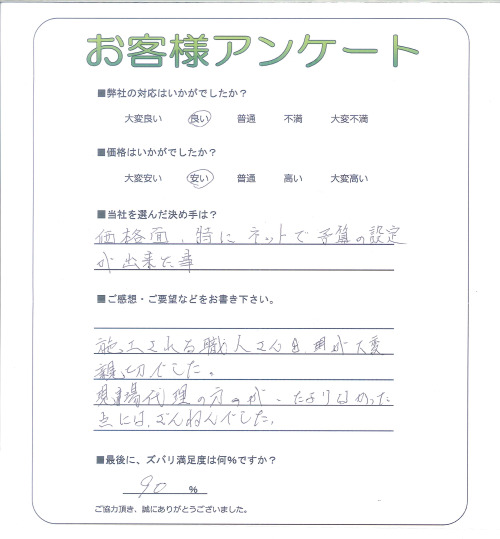 お客様アンケート
■弊社の対応はいかがでしたか？
大変良い 良い 普通 不満 大変不満
■価格はいかがでしたか？
大変安い 安い 普通 高い 大変高い
■当社を選んだ決め手は？
価格面、特にネットで予算の設定
が出来た事
■ご感想・ご要望などをお書き下さい。
施工される職人さん が大変
親切でした。
現場代理の方 が、たよりなかった
点には、ざんねんでした。
■最後に、ズバリ満足度は何%ですか？
90 %
ご協力頂き、誠にありがとうございました。